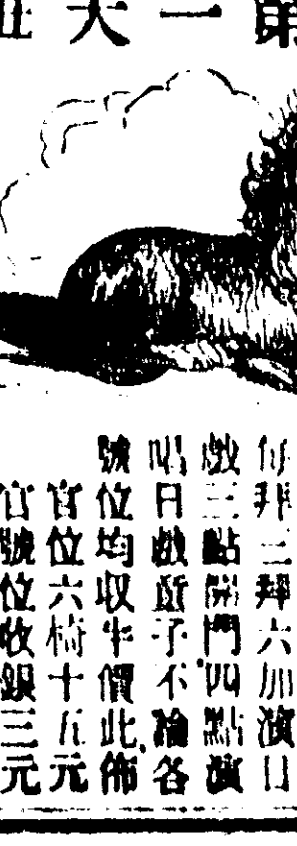 第一大
每拜三拜六加演日
戲三點開門四點演
唱日戲童子不論各
號位均收半價此佈
官位六椅十五元
官號位收銀三元